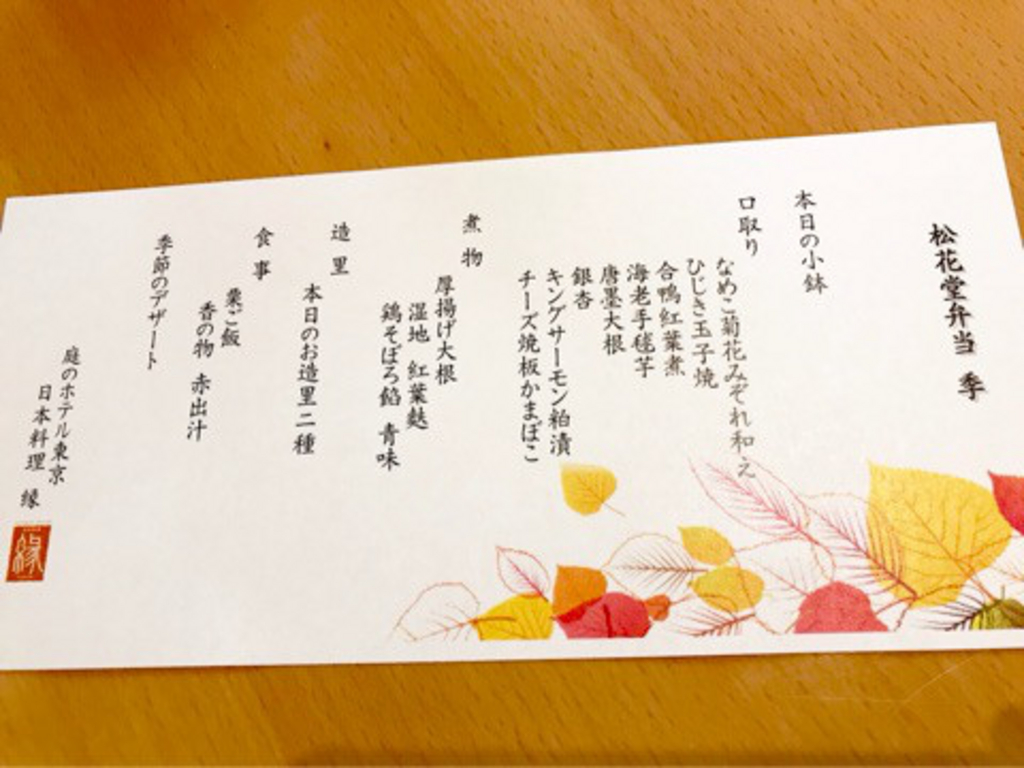 松花堂弁当 季
本日の小鉢
口取り
なめこ菊花みぞれ和え
ひじき玉子焼
合鴨紅葉煮
海老手毬芋
唐墨大根
銀杏
キングサーモン粕漬
チーズ焼板かまぼこ
煮物
厚揚げ大根
湿地 紅葉麩
鶏そぼろ餡 青味
造里
本日のお造里二種
食事
栗ご飯
香の物 赤出汁
季節のデザート
庭のホテル東京
日本料理 縁
縁